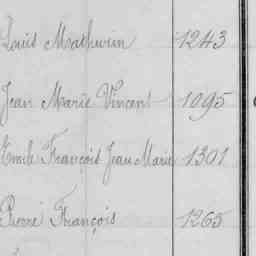 Louis Mathurin 1243
Jean Marie Vincent 1095
Emile François Jean Marie 1301
Pierre François 1265